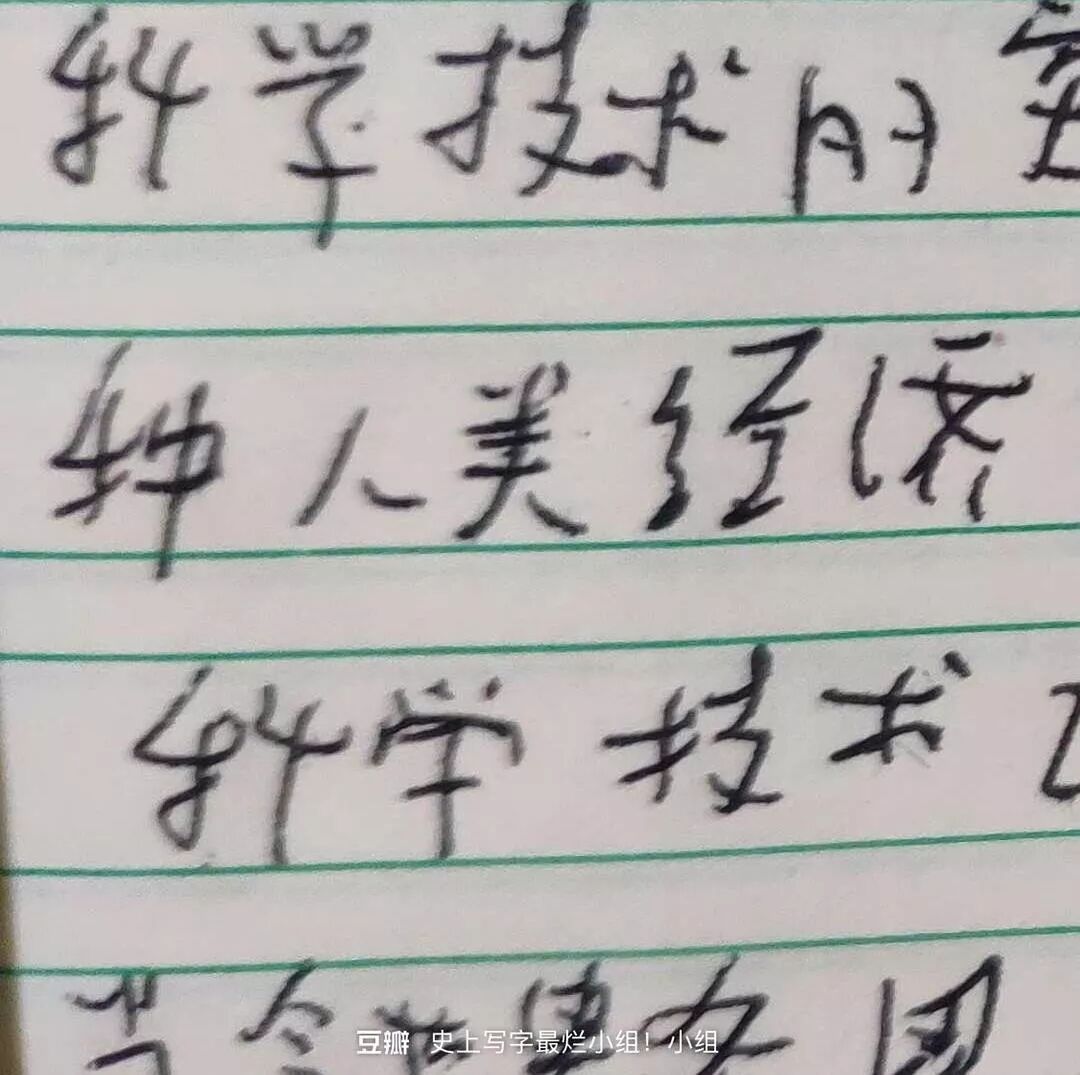 科学技术的
种人类经济
科学技术
当今世界各国
豆瓣 史上写字最烂小组！小组